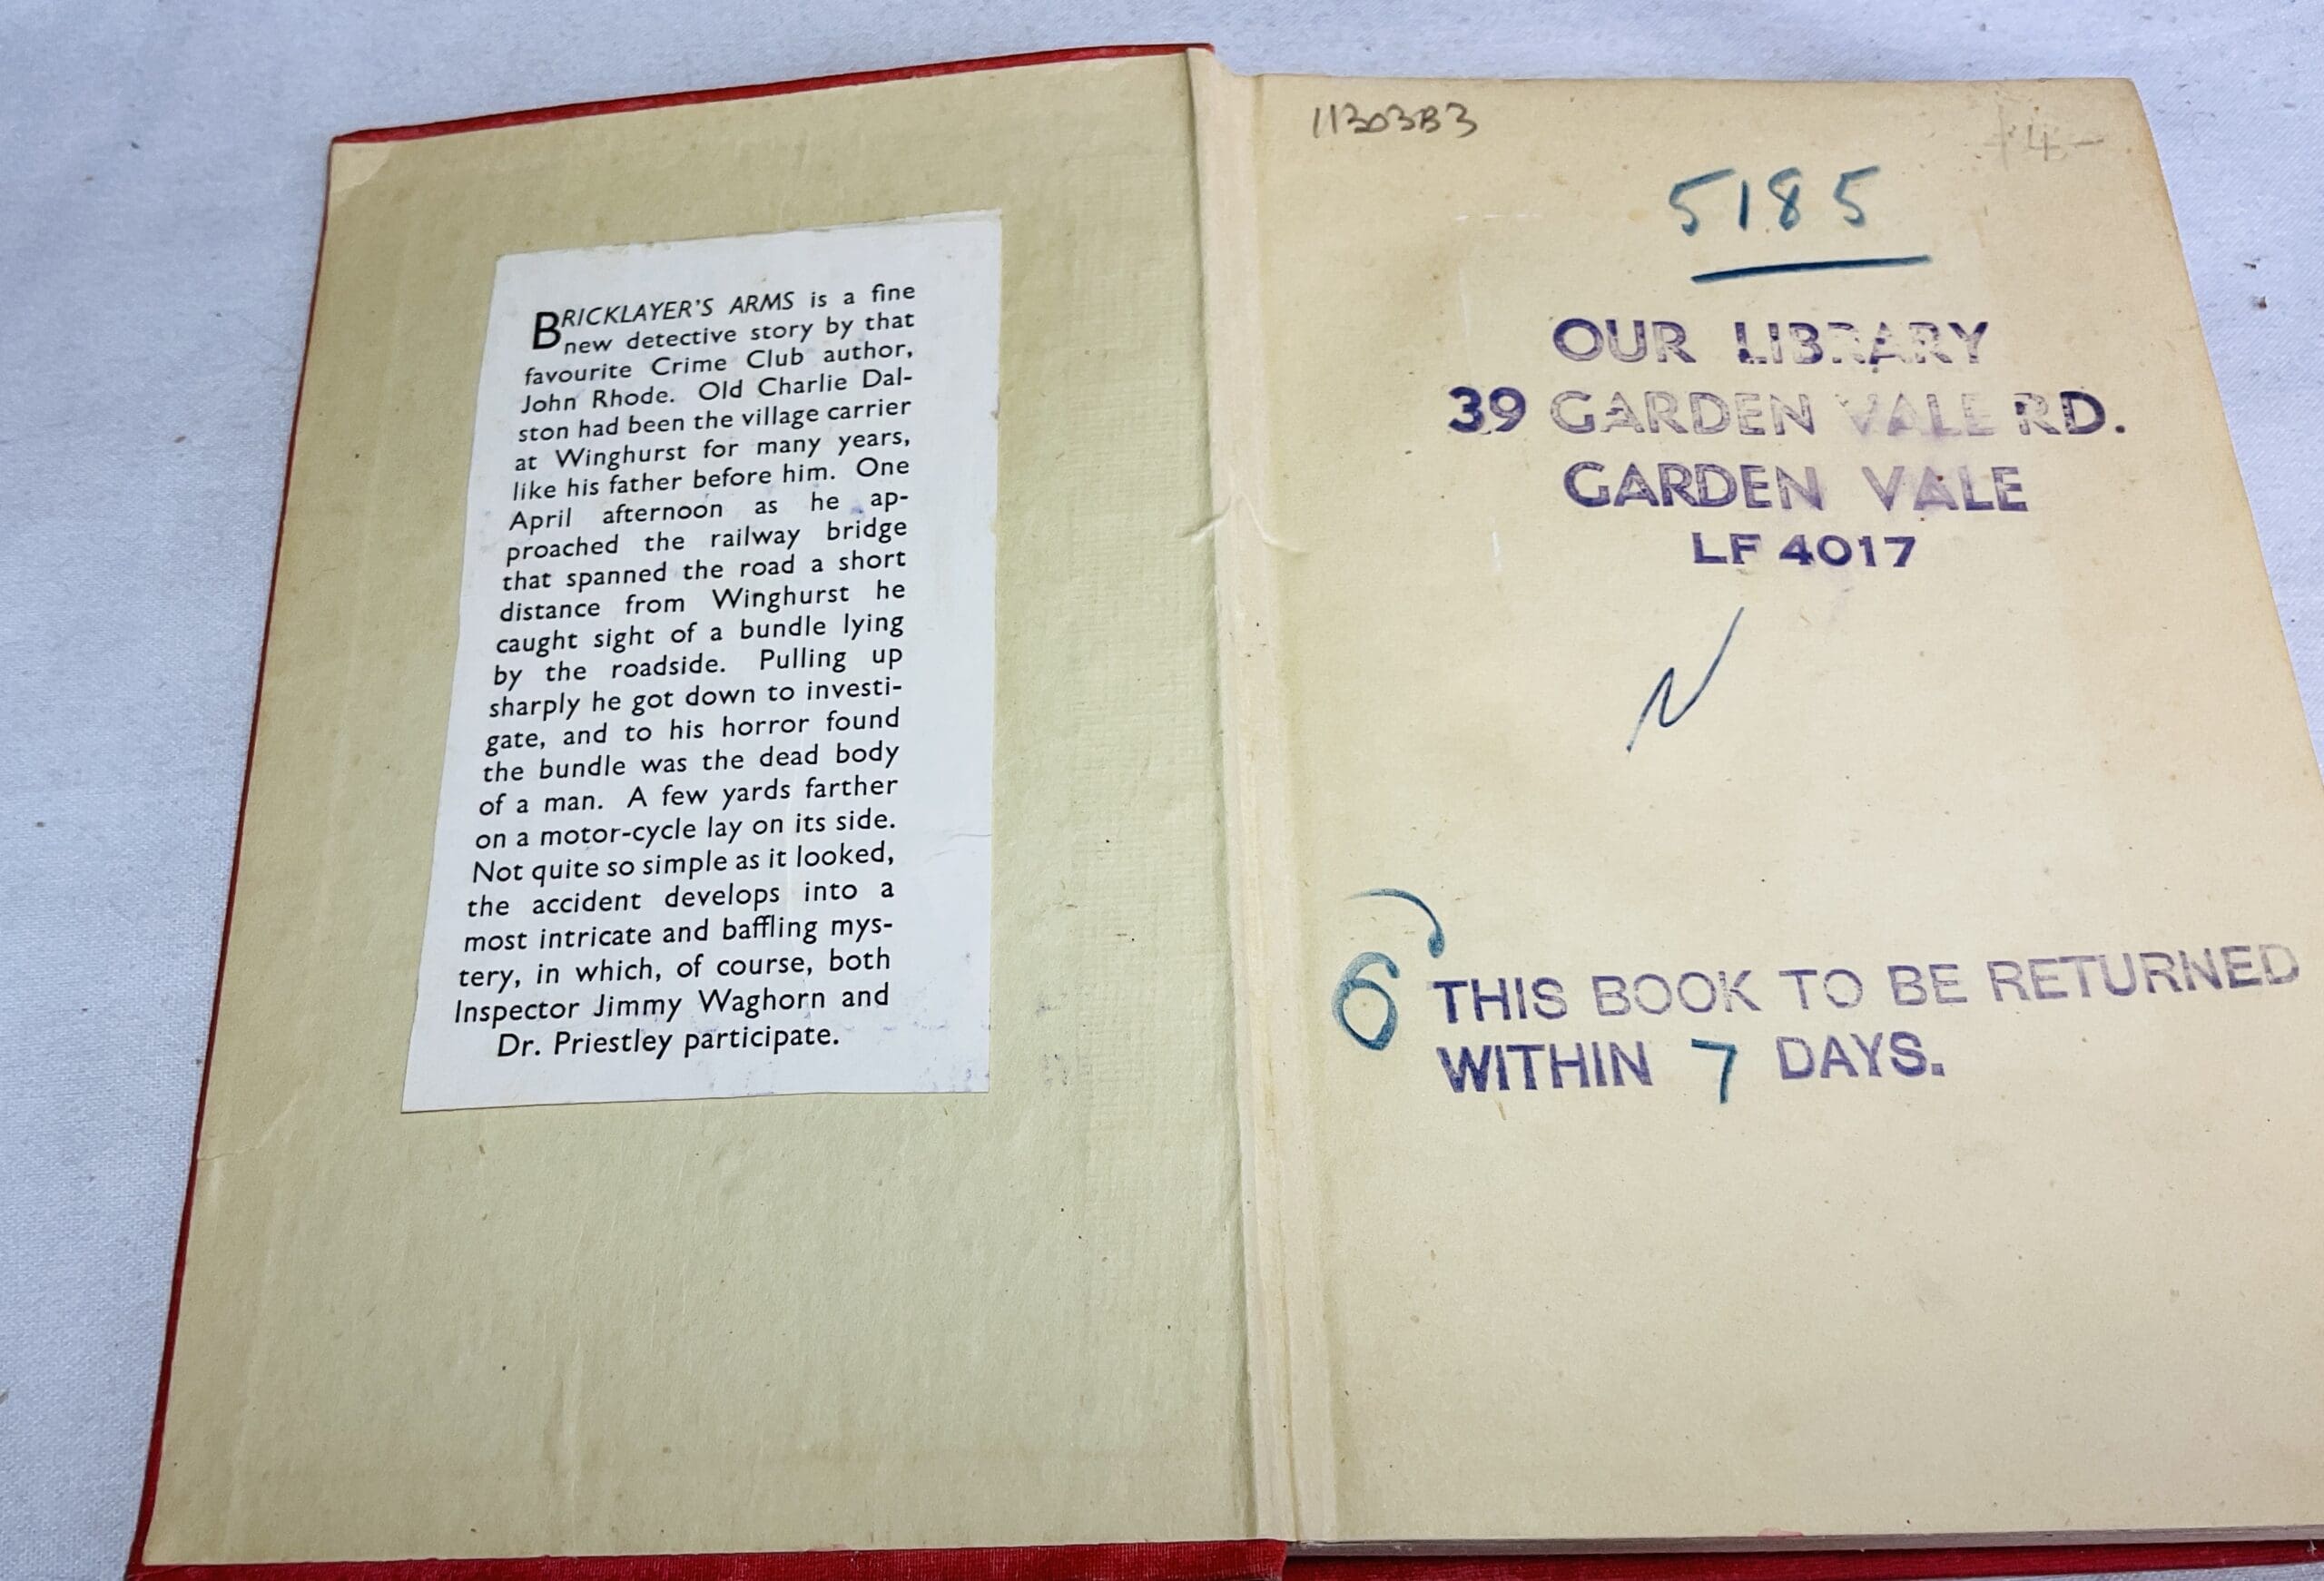 BRICKLAYER'S ARMS is a fine
new detective story by that
favourite Crime Club author,
John Rhode. Old Charlie Dal-
ston had been the village carrier
at Winghurst for many years,
like his father before him. One
April afternoon as he ap-
proached the railway bridge
that spanned the road a short
distance from Winghurst he
caught sight of a bundle lying
by the roadside. Pulling up
sharply he got down to investi-
gate, and to his horror found
the bundle was the dead body
of a man. A few yards farther
on a motor-cycle lay on its side.
Not quite so simple as it looked,
the accident develops into a
most intricate and baffling mys-
tery, in which, of course, both
Inspector Jimmy Waghorn and
Dr. Priestley participate.
5185
OUR LIBRARY
39 GARDEN VALE RD.
GARDEN VALE
LF 4017
N
6
THIS BOOK TO BE RETURNED
WITHIN 7 DAYS.